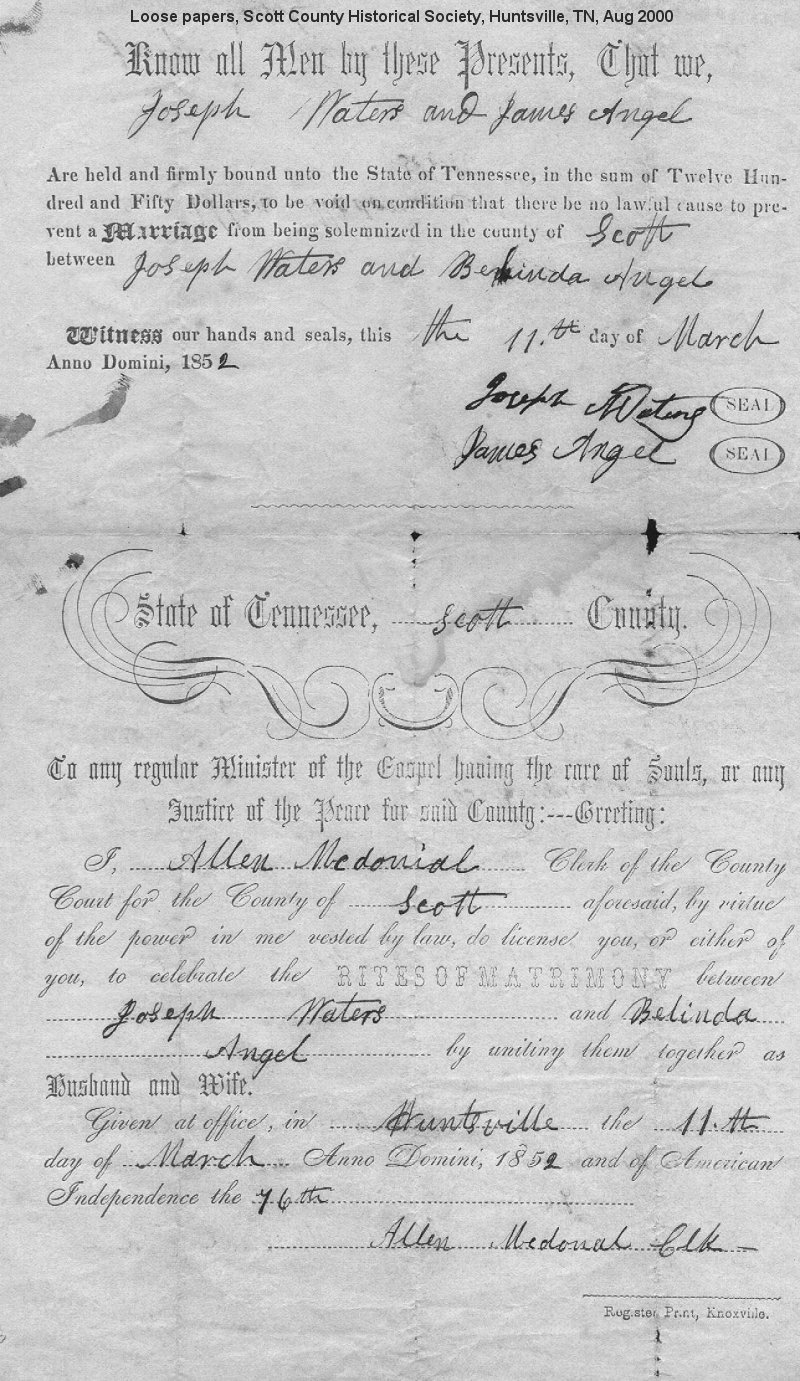 Loose papers, Scott County Historical Society, Huntsville, TN, Aug 2000
Know all Men by these Presents, That we,
Joseph Waters and James Angel
Are held and firmly bound unto the State of Tennessee, in the sum of Twelve Hun-
dred and Fifty Dollars, to be void on condition that there be no lawful cause to pre-
vent a Marriage from being solemnized in the county of Scott
between Joseph Waters and Belinda Angel
Witness our hands and seals, this the 11.th day of March
Anno Domini, 1852
Joseph Waters SEAL
James Angel SEAL
State of Tennessee, Scott County.
To any regular Minister of the Gospel having the care of Souls, or any
Justice of the Peace for said Countg:---Greeting:
I, Allen Mcdonial Clerk of the County
Court for the County of Scott aforesaid, by virtue
of the power in me vested by law, do license you, or either of
you, to celebrate the RITES OF MATRIMONY between
Joseph Waters and Belinda
Angel by unitiny them together as
Husband and Wife.
Given at office, in Huntsville the 11.th
day of March Anno Domini, 1852 and of American
Independence the 76th
Allen Mcdonal Clk
Register Print, Knoxville.